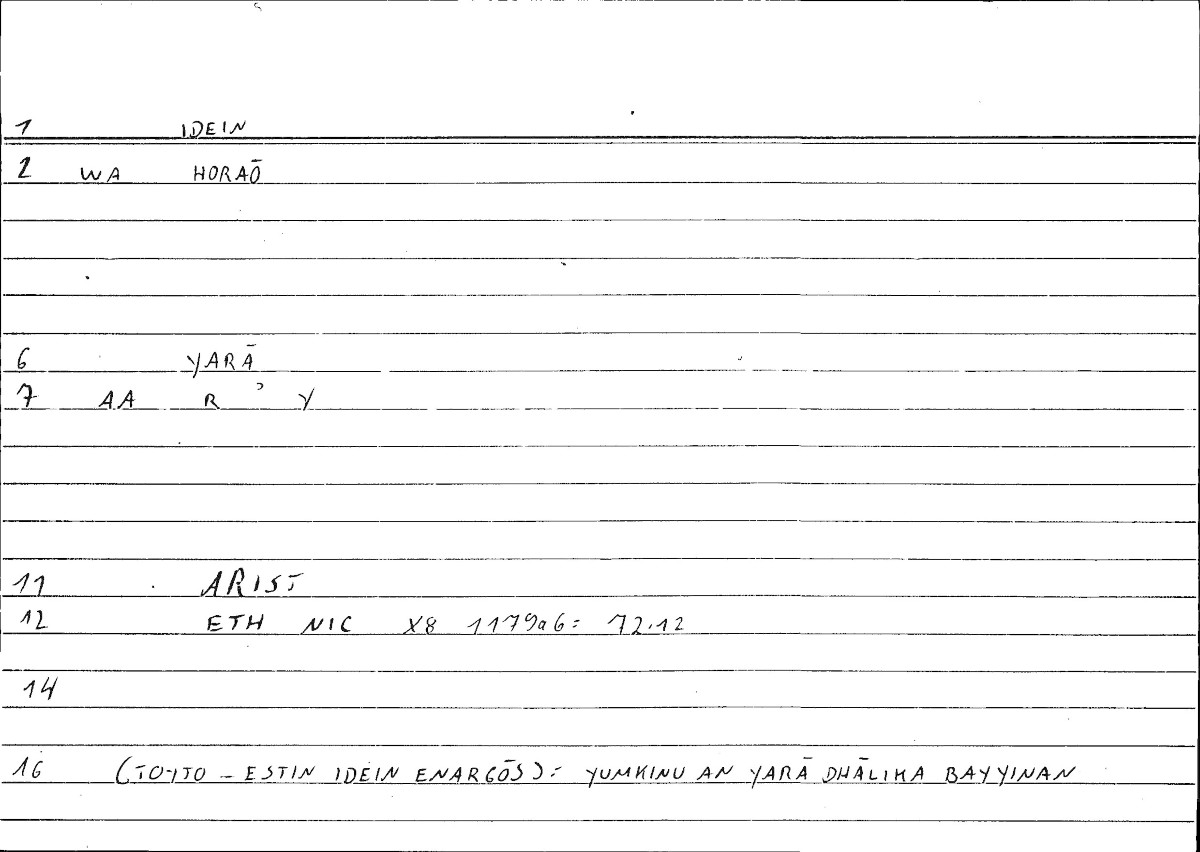 1 IDEIN
2 WA HORAŌ
6 YARĀ
7 AA R ʾ Y
11 ARIST
12 ETH NIC X8 1179a6= 72.12
14
16 (TOYTO - ESTIN IDEIN ENARGŌS)= YUMKINU AN YARĀ DHĀLIKA BAYYINAN